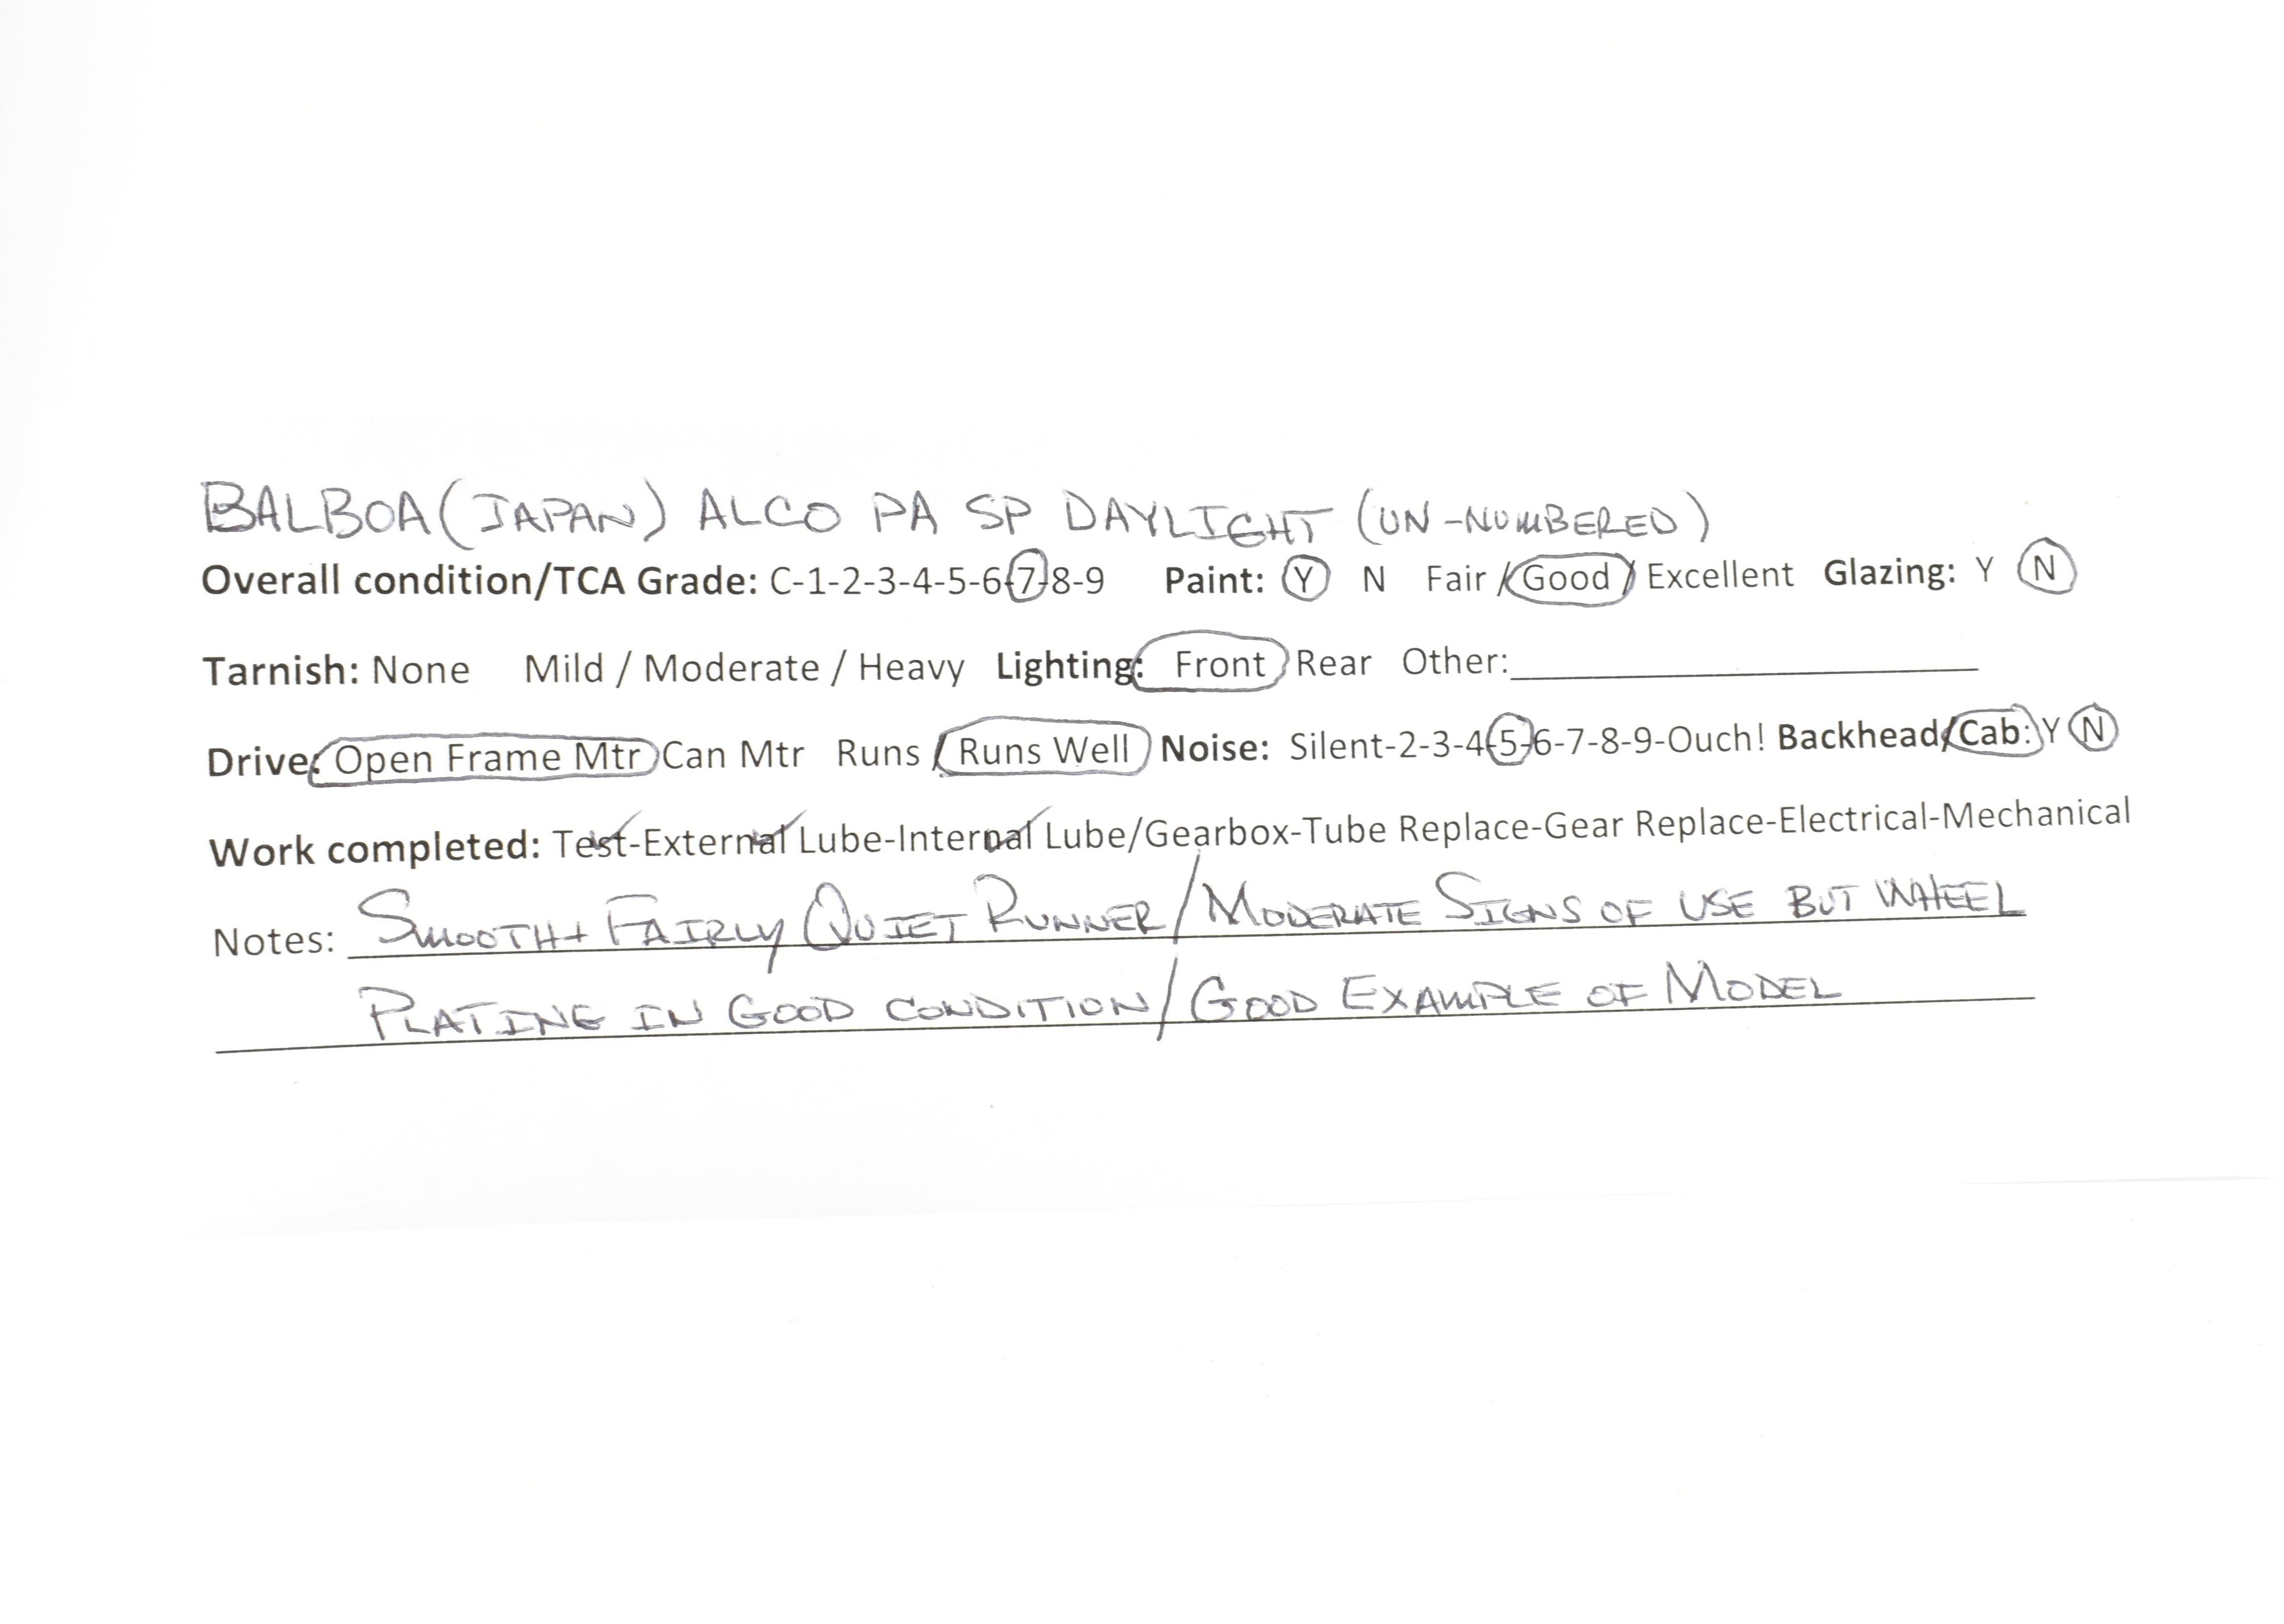 BALBOA (JAPAN) ALCO PA SP DAYLIGHT (UN-NUMBERED)
Overall condition/TCA Grade: C-1-2-3-4-5-6-7-8-9 Paint: Y N Fair / Good / Excellent Glazing: Y N
Tarnish: None Mild / Moderate / Heavy Lighting: Front Rear Other:
Drive: Open Frame Mtr Can Mtr Runs / Runs Well Noise: Silent-2-3-4-5-6-7-8-9-Ouch! Backhead/Cab: Y N
Work completed: Test-External Lube-Internal Lube/Gearbox-Tube Replace-Gear Replace-Electrical-Mechanical
Notes: SMOOTH + FAIRLY QUIET RUNNER/MODERATE SIGNS OF USE BUT WHEEL
PLATING IN GOOD CONDITION/GOOD EXAMPLE OF MODEL